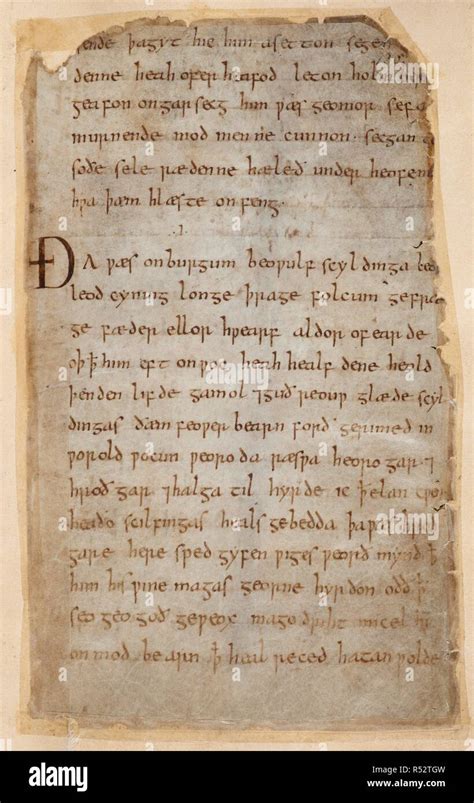 þagyt hie him asetton segen
denne heah ofer heafod leton hol
geafon on garsecg him pæs geomor sefa
murnende mod men ne cunnon secgan
soðe sele rædenne hæleð under heofen
hpa þæm hlæste onfeng.
.I.
ÐA pæs on burgum beopulf scyldinga
leod cyning longe þrage folcum gefræ
ge fæder ellor hpearf aldor of earde
oþ þ him eft onpoc heah healf dene heold
þenden lifde gamol ⁊ guð reoup glæde scyl
dingas ðæm feoper bearn forð gerimed in
porold pocun peoroda ræspa heoro gar ⁊
hroð gar ⁊ halga til hyrde ic þ elan cpen
heaðo scilfingas heals gebedda þa pæs
gare here sped gyfen piges peorð mynd þ
him his pine magas georne hyrdon oðð þ
seo geogoð gepeox mago driht micel
on mod be arn þ heal reced hatan polde
alamy
alamy
Image ID: R52TGW
www.alamy.com